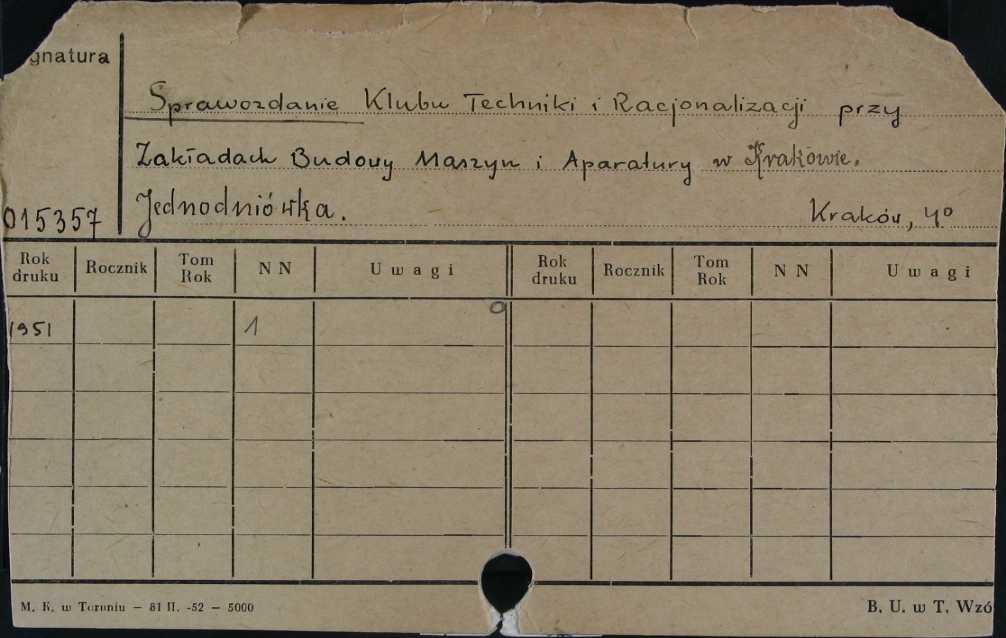 gnatura
Sprawozdanie Klubu Techniki i Racjonalizacji przy
Zakładach Budowy Maszyn i Aparatury w Krakowie.
Jednodniówka. Kraków, 4°
015357
Rok druku Rocznik Tom Rok NN Uwagi Rok druku Rocznik Tom Rok NN Uwagi
1951 1
M. K. w Toruniu — 81 II. -52 — 5000 B. U. w T. Wzó